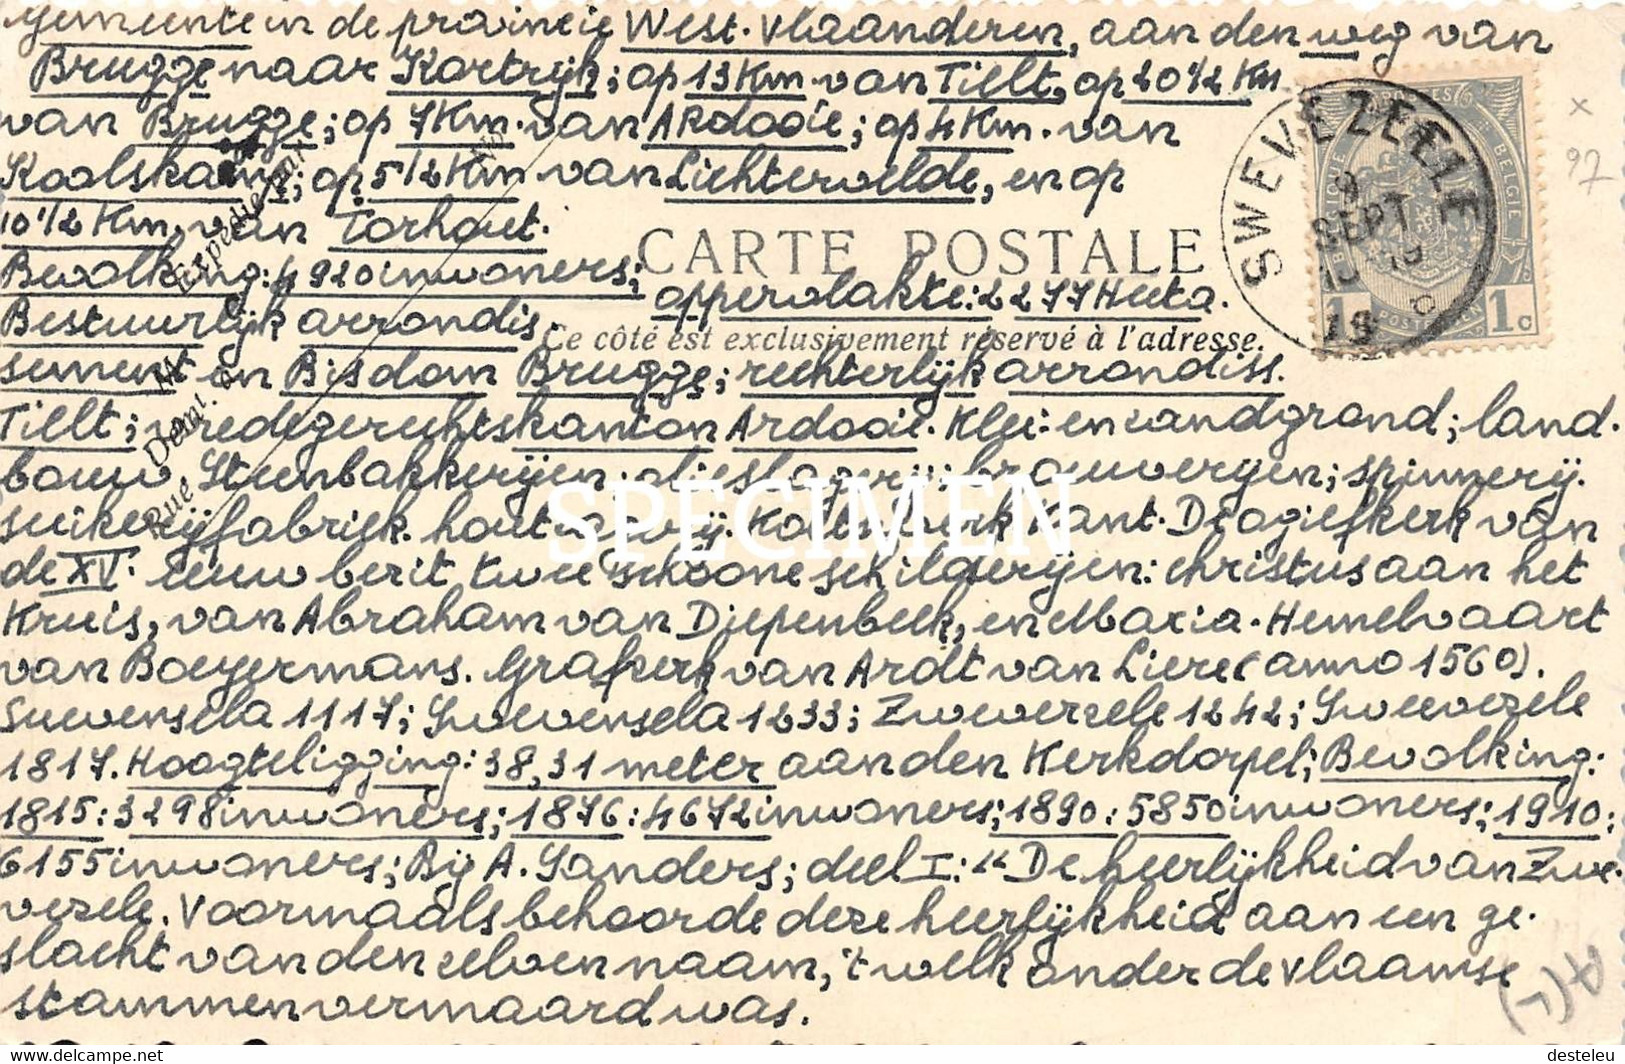 gemeente in de provincie West-Vlaanderen, aan den weg van
Brugge naar Kortrijk; op 13 Km. van Tielt, op 20 1/2 Km
van Brugge; op 7 Km. van Ardooie; op 4 Km. van
Koolskamp; op 5 1/2 Km van Lichtervelde, en op
10 1/2 Km. van Torhout.
Bevolking: 4920 inwoners;
oppervlakte: 2277 Hecta.
Bestuurlijk arrondis-
sement en Bisdom Brugge; rechterlijk arrondiss.
Tielt; vredegerechtskanton Ardooie. Klei- en zandgrond; land-
bouw. Steenbakkerijen; olieslagerij; brouwerijen; spinnerij.
suikerijfabriek. hout Kant. Driegiefkerk van
de XV. eeuw bezit twee schoone schilderijen: Christus aan het
Kruis, van Abraham van Diepenbeek, en Maria-Hemelvaart
van Boeyermans. Grafzerk van Ardt van Liere (anno 1560).
Suevensela 1117; Swevensela 1233; Zwevezele 1242; Sweevezele
1817. Hoogteligging: 38,31 meter aan den Kerkdorpel; Bevolking:
1815: 3298 inwoners; 1876: 4672 inwoners; 1890: 5850 inwoners; 1910:
6155 inwoners; Bij A. Sanders; deel I: "De heerlijkheid van Zwe-
vezele. Voormaals behoorde deze heerlijkheid aan een ge-
slacht van den zelven naam, 't welk onder de vlaamse
stammen vermaard was.
CARTE POSTALE
Ce côté est exclusivement réservé à l'adresse.
Expéditeur
M
Dem! à
Rue
No
SWEVEZEELE
9
SEPT
19
POSTES
BELGIQUE
BELGIE
POSTERIJEN
1
1c
x
97
SPECIMEN
www.delcampe.net
desteleu